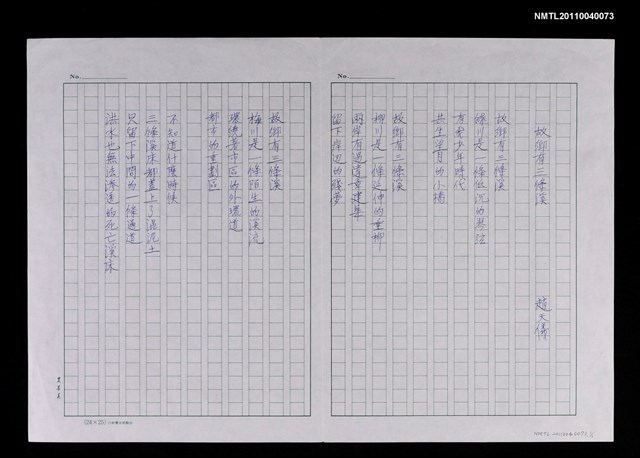 NMTL20110040073
No.
No.
故鄉有三條溪
趙天儀
故鄉有三條溪
綠川是一條低沉的琴弦
有我少年時代
共生歲月的小橋
故鄉有三條溪
柳川是一條延伸的垂柳
兩岸有過違章建築
留下岸邊的殘夢
故鄉有三條溪
梅川是一條陌生的溪流
環繞著市區的外環道
都市的重劃區
不知道什麼時候
三條溪床都蓋上了混泥土
只留下中間的一條通道
洪水也無法滲透的死亡溪床
(24×25)